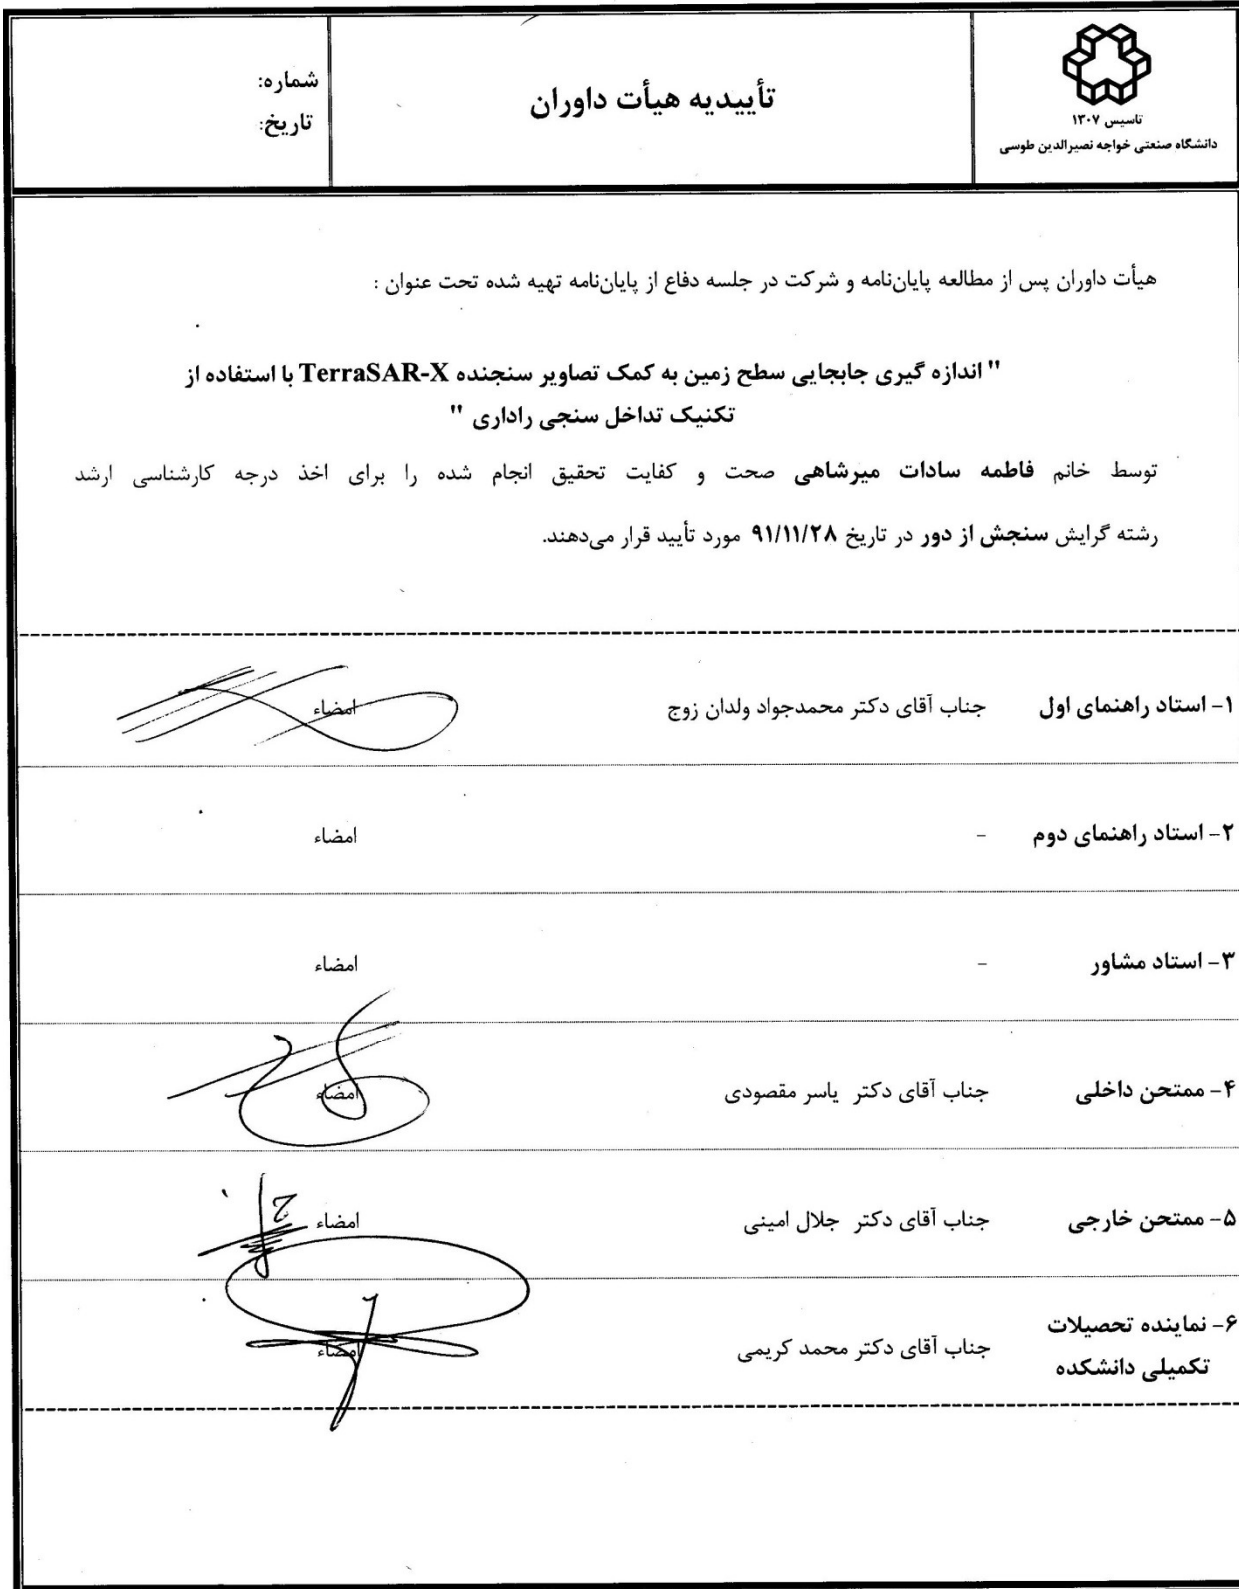 تاسیس ۱۳۰۷
دانشگاه صنعتی خواجه نصیرالدین طوسی
تأییدیه هیأت داوران
شماره:
تاریخ:
هیأت داوران پس از مطالعه پایان‌نامه و شرکت در جلسه دفاع از پایان‌نامه تهیه شده تحت عنوان :
" اندازه گیری جابجایی سطح زمین به کمک تصاویر سنجنده TerraSAR-X با استفاده از
تکنیک تداخل سنجی راداری "
توسط خانم فاطمه سادات میرشاهی صحت و کفایت تحقیق انجام شده را برای اخذ درجه کارشناسی ارشد
رشته گرایش سنجش از دور در تاریخ ۹۱/۱۱/۲۸ مورد تأیید قرار می‌دهند.
۱- استاد راهنمای اول جناب آقای دکتر محمدجواد ولدان زوج امضاء
۲- استاد راهنمای دوم - امضاء
۳- استاد مشاور - امضاء
۴- ممتحن داخلی جناب آقای دکتر یاسر مقصودی امضاء
۵- ممتحن خارجی جناب آقای دکتر جلال امینی امضاء
۶- نماینده تحصیلات
تکمیلی دانشکده جناب آقای دکتر محمد کریمی امضاء